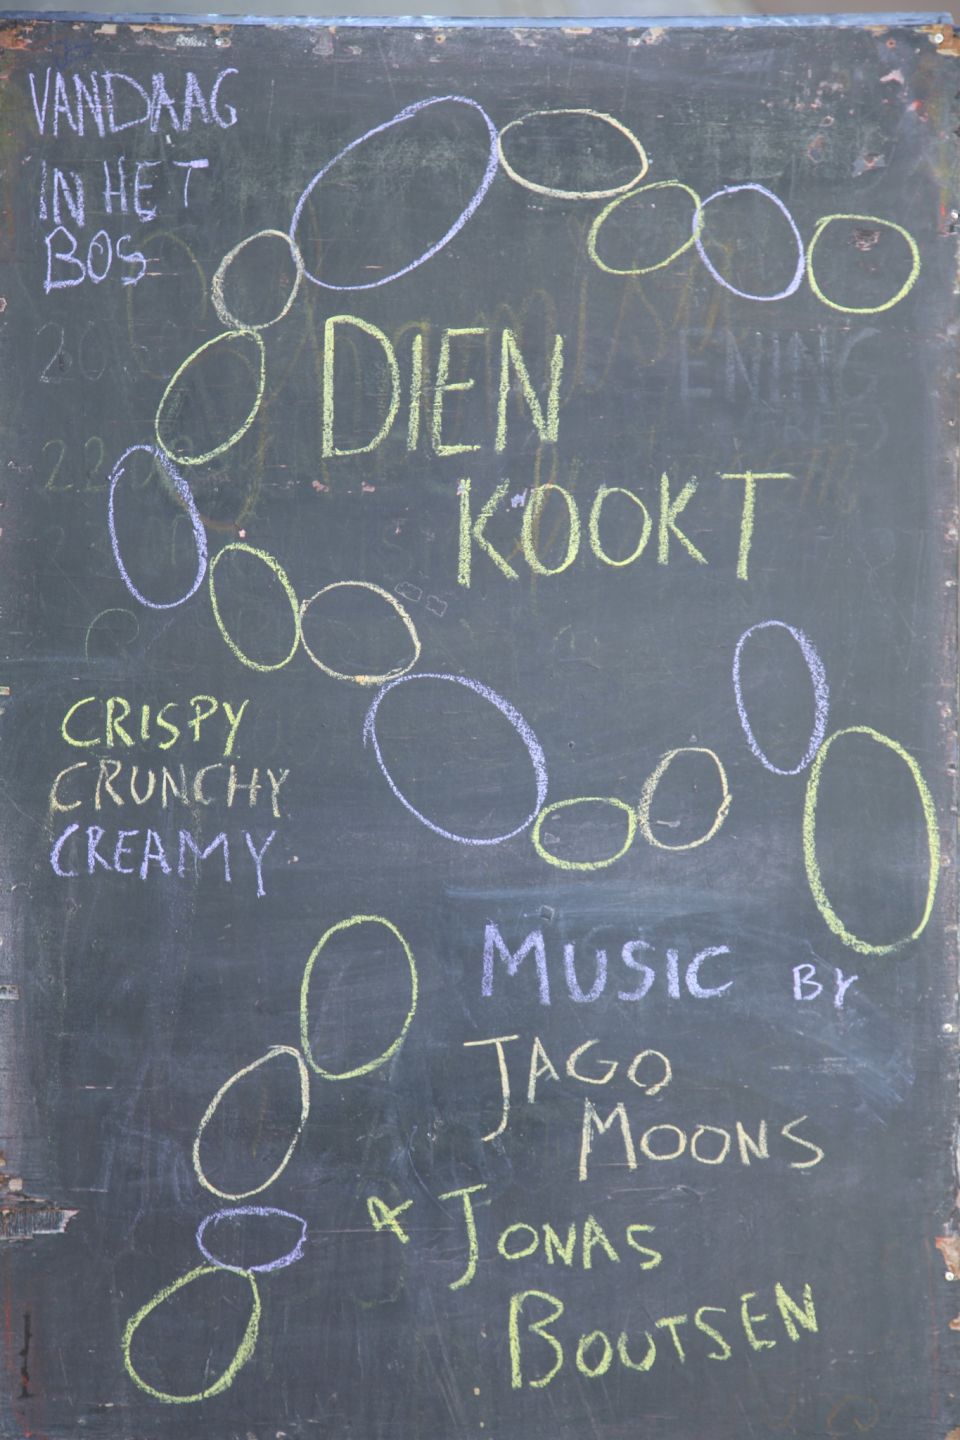 VANDAAG
IN HET
BOS
DIEN
KOOKT
CRISPY
CRUNCHY
CREAMY
MUSIC BY
JAGO
MOONS
& JONAS
BOUTSEN